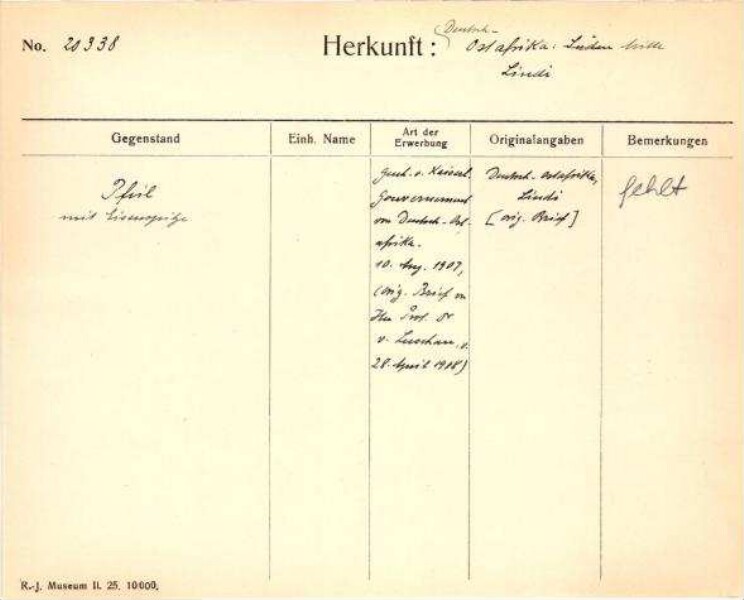 No. 20338
Herkunft: Deutsch-
Ostafrika: Süden
Lindi
Gegenstand
Einh. Name
Art der Erwerbung
Originalangaben
Bemerkungen
Pfeil
mit Eisenspitze
Gesch. v. Kaiserl.
Gouvernement
von Deutsch-Ost-
afrika.
10. Aug. 1907,
(orig. Brief von
Hrn Prof. Dr
v. Luschan, v.
28. April 1908)
Deutsch-Ostafrika,
Lindi
[orig. Brief]
fehlt
R.-J. Museum II. 25. 10000.